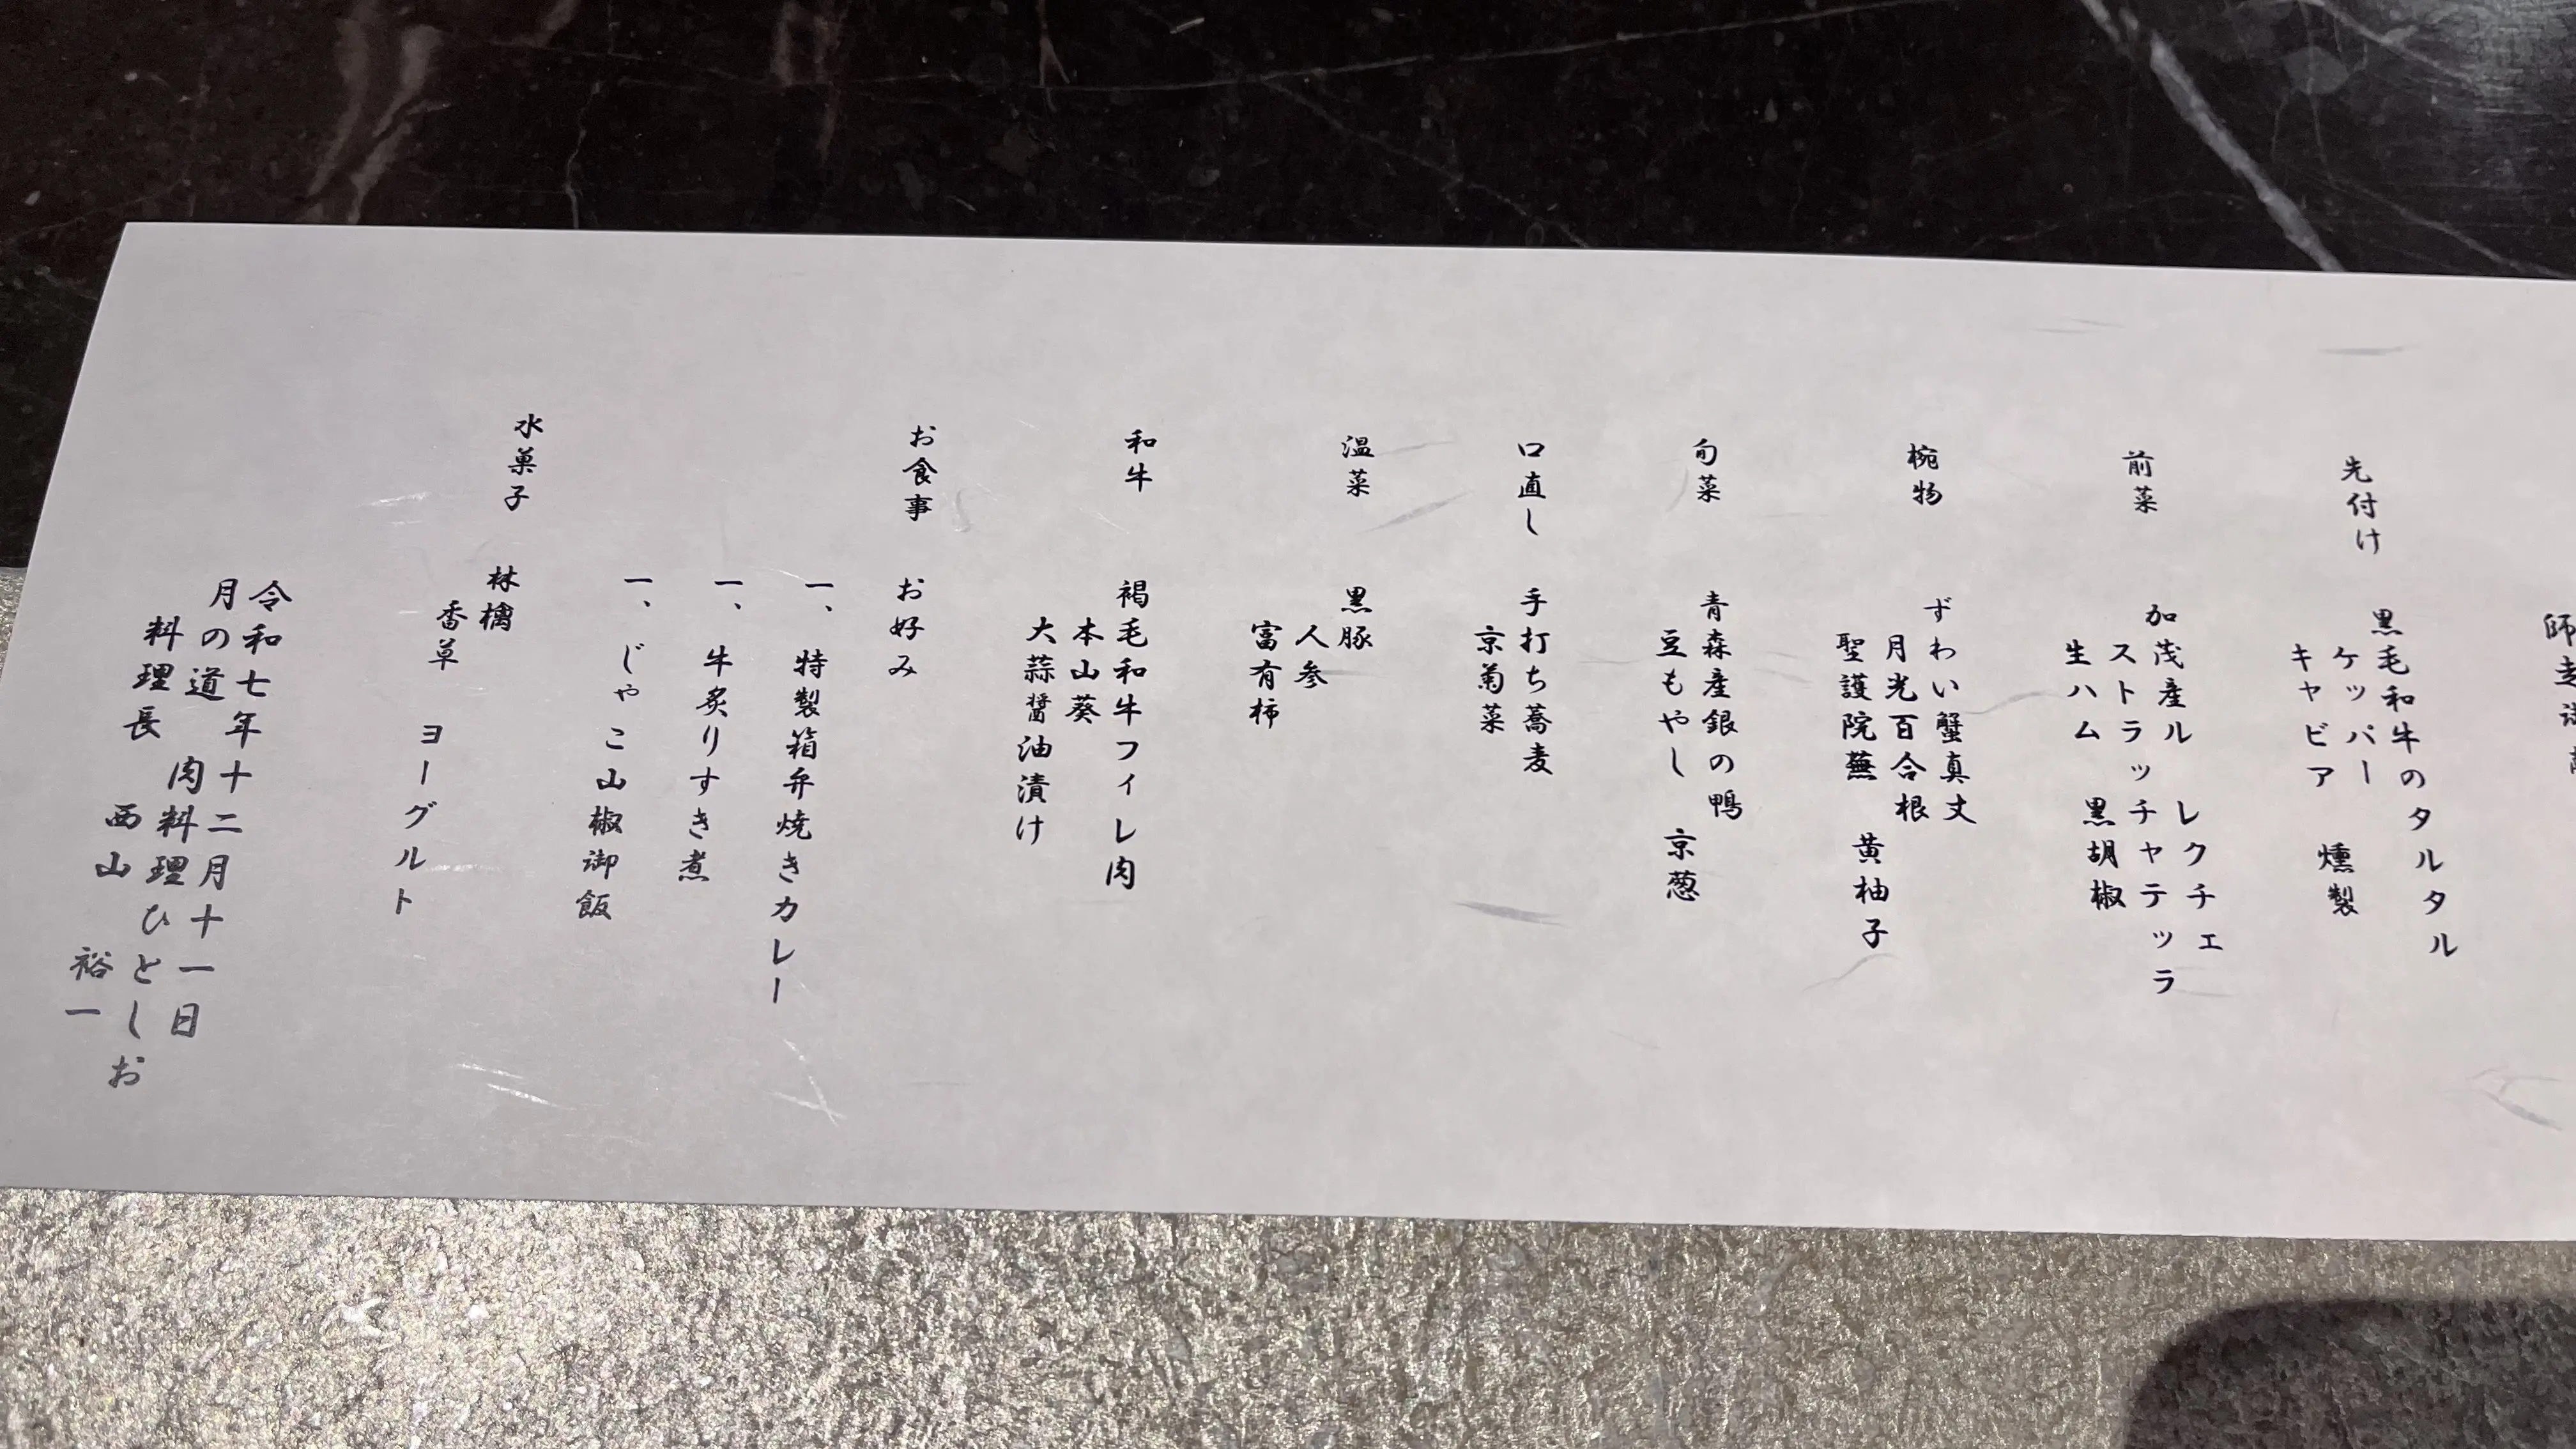 先付け
黒毛和牛のタルタル
ケッパー
キャビア 燻製
前菜
加茂産ル レクチェ
ストラッチャテッラ
生ハム 黒胡椒
椀物
ずわい蟹真丈
月光百合根
聖護院蕪 黄柚子
旬菜
青森産銀の鴨
豆もやし 京葱
口直し
手打ち蕎麦
京菊菜
温菜
黒豚
人参
富有柿
和牛
褐毛和牛フィレ肉
本山葵
大蒜醤油漬け
お食事
お好み
一、 特製箱弁焼きカレー
一、 牛炙りすき煮
一、 じゃこ山椒御飯
水菓子
林檎
香草 ヨーグルト
令和七年十二月十一日
月の道 肉料理ひとしお
料理長 西山 裕一